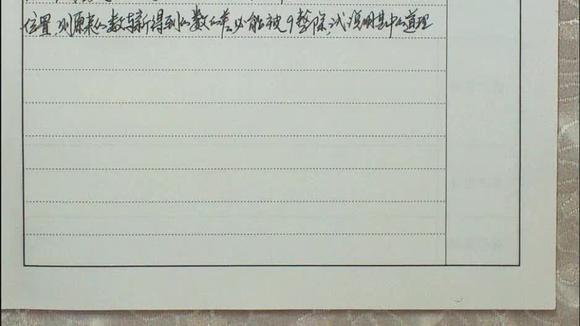 位置,则原来的数与新得到的数的差必能被9整除,试说明其中的道理